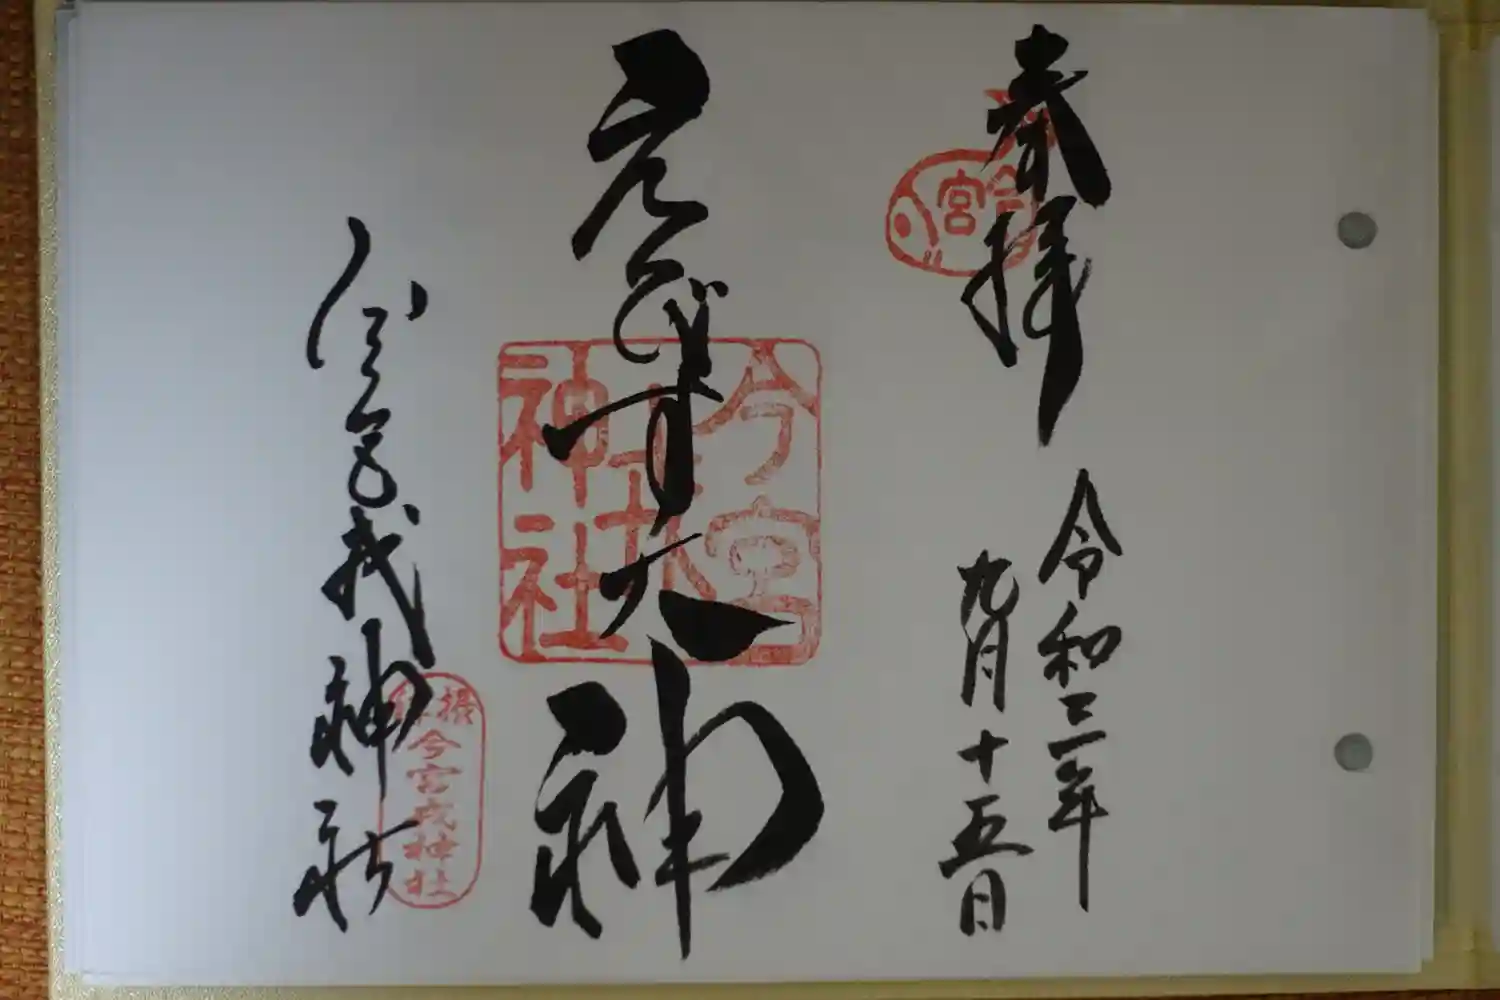 奉拝
今宮
令和三年
九月十五日
えびす大神
今宮戎神社
今宮戎神社
今宮戎神社